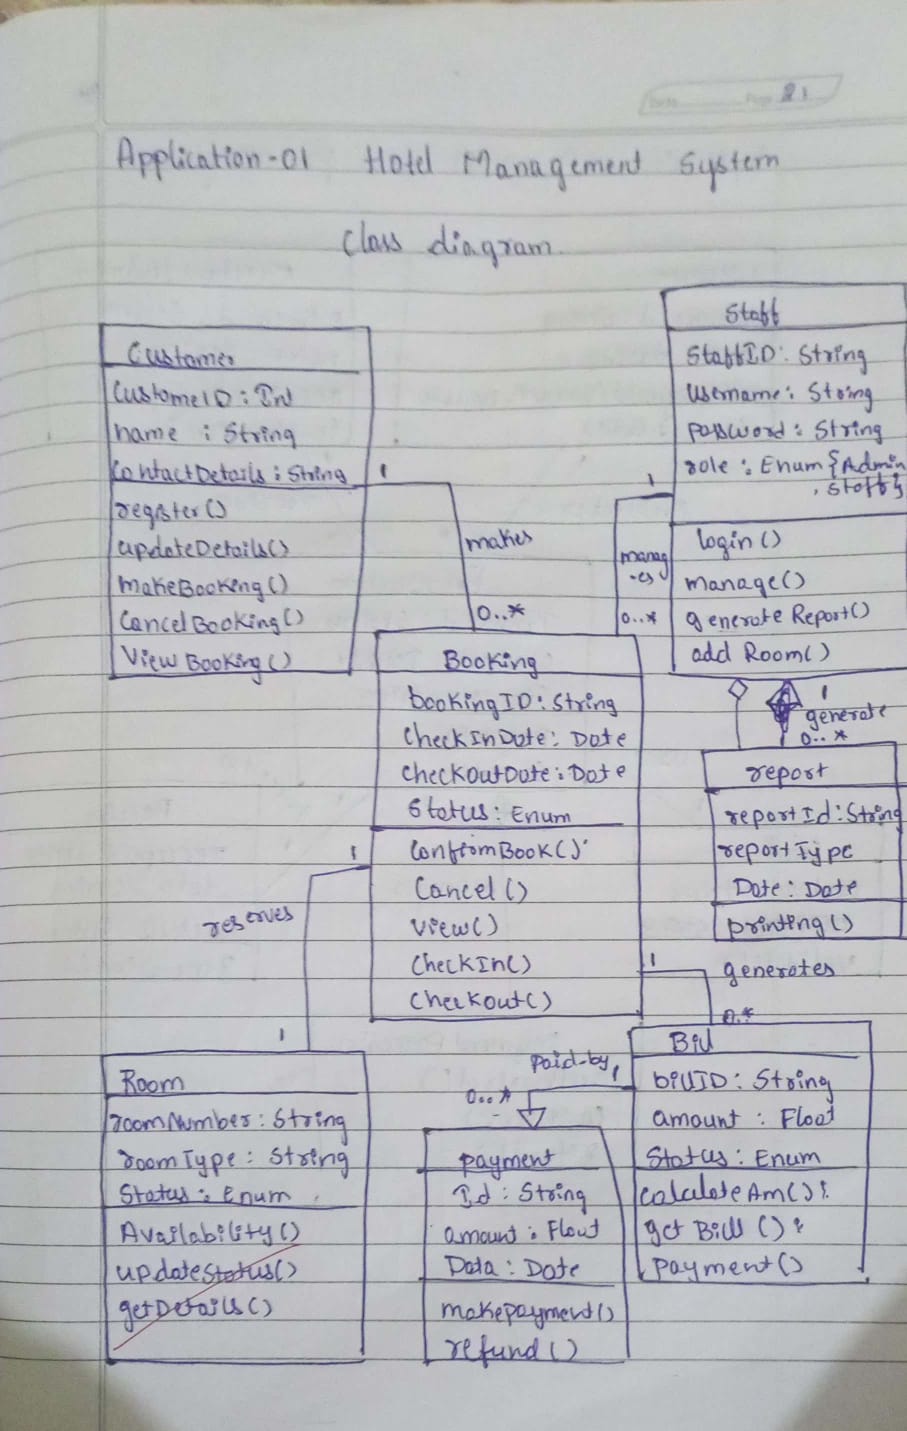 Date Page 21
Application-01 Hotel Management System
Class diagram.
Customer
CustomeID : Int
name : String
ContactDetails : String
register()
updateDetails()
makeBooking()
CancelBooking()
View Booking()
1
makes
0..*
Staff
StaffID : String
Username : String
password : String
role : Enum {Admin
, staff}
login()
manage()
generate Report()
add Room()
1
manag
-es
0..*
1
generate
0..*
report
report Id : String
report Type
Date : Date
printing()
Booking
bookingID : String
CheckInDate : Date
CheckOutDate : Date
Status : Enum
ConfromBook()
Cancel()
View()
CheckIn()
Checkout()
1
reserves
1
1
generates
0.*
Room
roomNumber : String
roomType : String
Status : Enum
Availability()
updateStatus()
getDetails()
Paid-by
1
0..*
payment
Id : String
amount : Float
Data : Date
makepayment()
refund()
Bill
billID : String
amount : Float
Status : Enum
calculateAm() :
get Bill() :
payment()